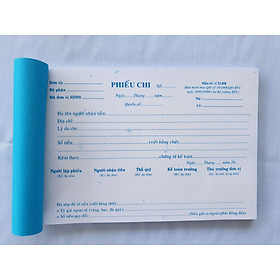 Đơn vị:
PHIẾU CHI Số:
Mẫu số: C31-BB
Bộ phận:
Mã đơn vị SDNS:
Ngày Tháng năm
Quyển số:
Nợ:
Có:
Họ tên người nhận tiền:
Địa chỉ:
Lý do chi:
Số tiền: (viết bằng chữ)
Kèm theo: chứng từ kế toán.
Ngày tháng năm 20
Người lập phiếu Người nhận tiền Thủ quỹ Kế toán trưởng Thủ trưởng đơn vị
(Ký, họ tên) (Ký, họ tên) (Ký, họ tên) (Ký, họ tên)
Đã nhận đủ số tiền (viết bằng chữ)
+ Tỷ giá ngoại tệ (vàng, bạc, đá quý)
+ Số tiền quy đổi